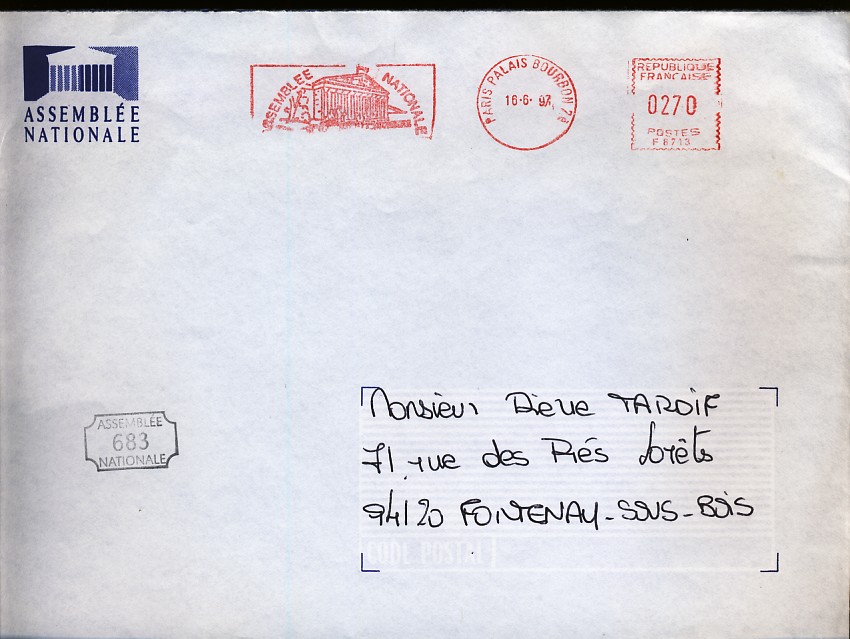 ASSEMBLÉE
NATIONALE
ASSEMBLEE NATIONALE
PARIS PALAIS BOURBON 7è
16-6-97
REPUBLIQUE
FRANCAISE
0270
POSTES
F 8713
ASSEMBLÉE
683
NATIONALE
Monsieur Pierre TARDIF
71, rue des Prés forêts
94120 FONTENAY-SOUS-BOIS
CODE POSTAL